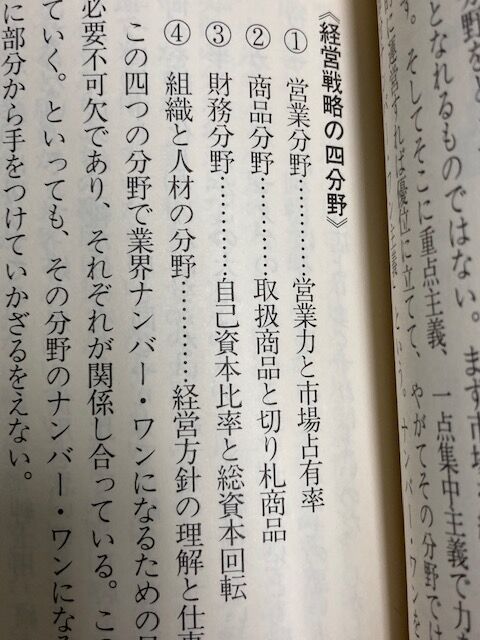 野をと
となれるものではない。まず市場
す。そしてそこに重点主義、一点集中主義で力を
に運営すれば優位に立てて、やがてその分野では
という。ナンバー・ワンを
《経営戦略の四分野》
① 営業分野…………営業力と市場占有率
② 商品分野…………取扱商品と切り札商品
③ 財務分野…………自己資本比率と総資本回転
④ 組織と人材の分野…………経営方針の理解と仕事
この四つの分野で業界ナンバー・ワンになるための
必要不可欠であり、それぞれが関係し合っている。こ
ていく。といっても、その分野のナンバー・ワンにな
に部分から手をつけていかざるをえない。